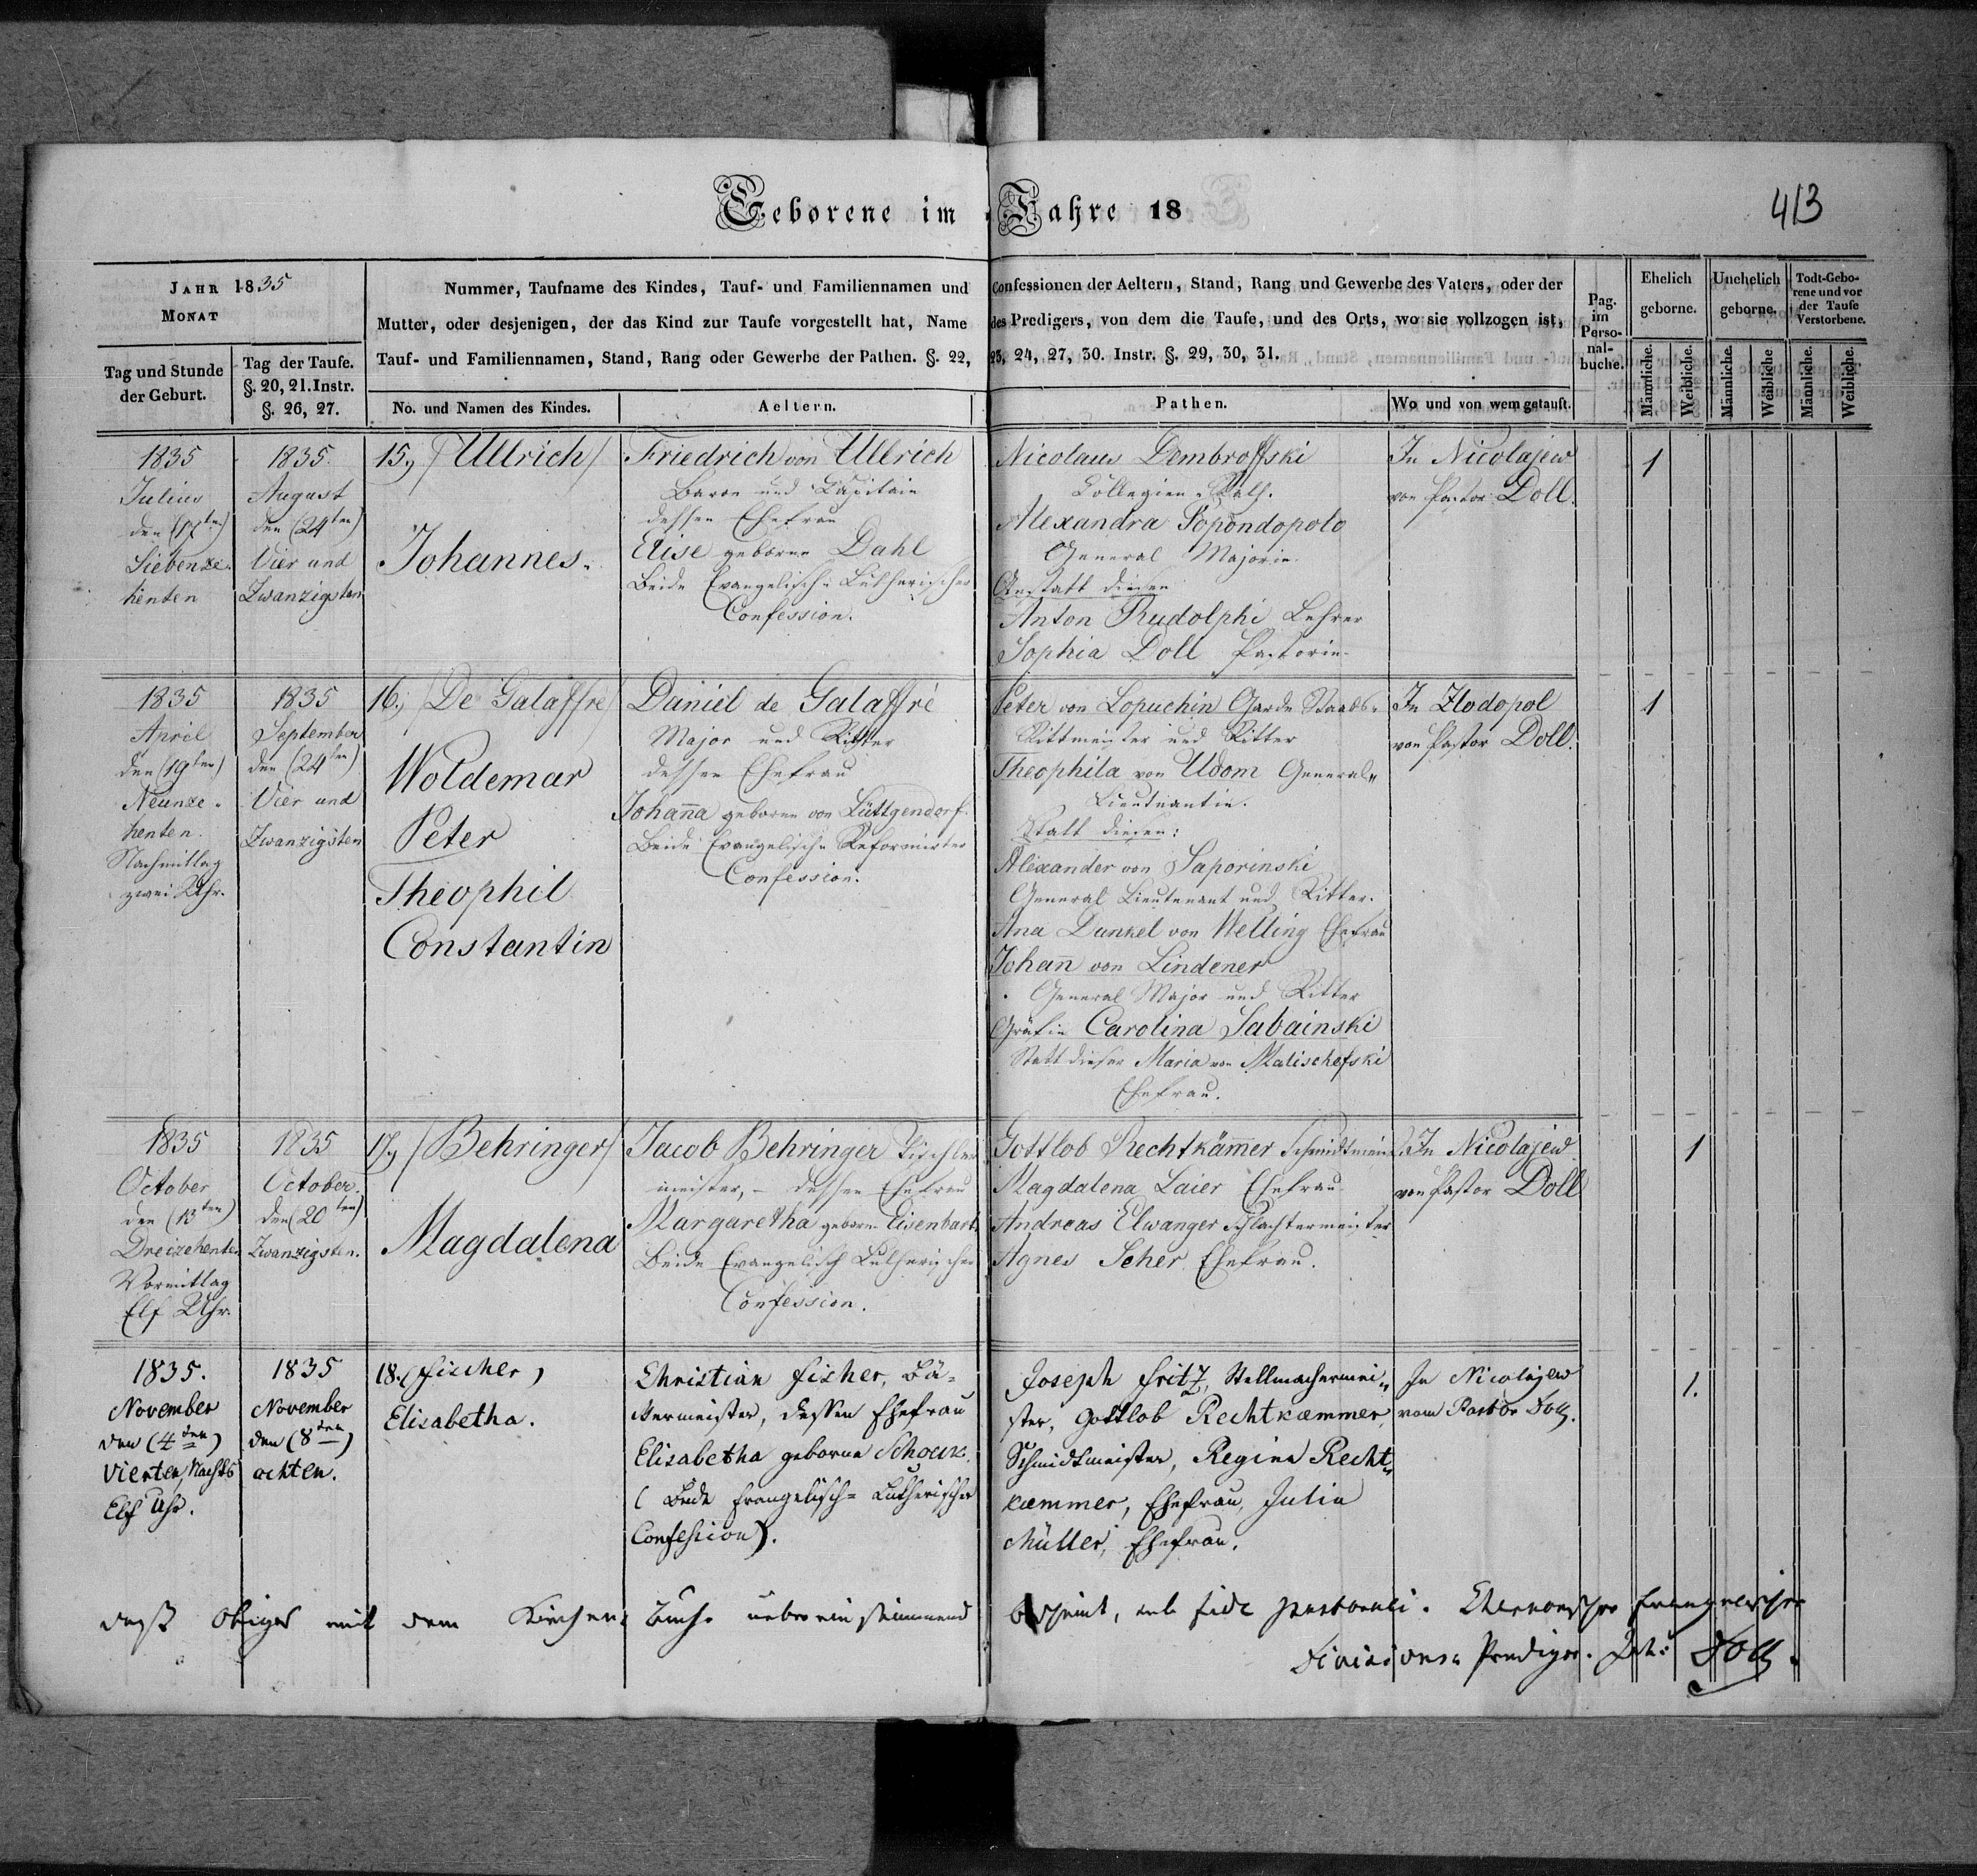 Geborene im Jahre 18
413
JAHR 1835
MONAT
Tag und Stunde
der Geburt.
Tag der Taufe.
§. 20, 21. Instr.
§. 26, 27.
Nummer, Taufname des Kindes, Tauf- und Familiennamen und Confessionen der Aeltern, Stand, Rang und Gewerbe des Vaters, oder der
Mutter, oder desjenigen, der das Kind zur Taufe vorgestellt hat, Name des Predigers, von dem die Taufe, und des Orts, wo sie vollzogen ist,
Tauf- und Familiennamen, Stand, Rang oder Gewerbe der Pathen. §. 22, 23, 24, 27, 30. Instr. §. 29, 30, 31.
No. und Namen des Kindes.
Aeltern.
Pathen.
Wo und von wem getauft.
Pag.
im
Perso-
nal-
buche.
Ehelich
geborne.
Unehelich
geborne.
Todt-Gebo-
rene und vor
der Taufe
Verstorbene.
Männliche.
Weibliche.
Männliche.
Weibliche
Männliche.
Weibliche.
1835
Julius
den (17ten)
Siebenze-
henten
1835.
August
den (24ten)
Vier und
Zwanzigsten
15, (Ullrich)
Johannes.
Friedrich von Ullrich
Baron und Kapitain
dessen Ehefrau
Elise geborne Dahl
Beide Evangelisch-Lutherischer
Confession.
Nicolaus Dombroffski
Collegien-Rath.
Alexandra Popondopolo
General Majorin.
Anstatt diesen
Anton Rudolphi Lehrer
Sophia Doll Pastorin
In Nicolajew
von Pastor Doll.
1
1835
April
den (19ten)
Neunze-
henten.
Nachmittag
zwei Uhr.
1835
September
den (24ten)
Vier und
Zwanzigsten
16, (De Galaffre)
Woldemar
Peter
Theophil
Constantin
Daniel de Galaffré
Major und Ritter
dessen Ehefrau
Johanna geborne von Lüttgendorf.
Beide Evangelisch-Reformirter
Confession.
Peter von Lopuchin Garde Staabs-
Rittmeister und Ritter
Theophila von Udom General-
Lieutnantin.
Statt diesen:
Alexander von Saporinski
General Lieutenant und Ritter.
Ana Dunkel von Welling Ehefrau
Johann von Lindener
General Major und Ritter
Gräfin Carolina Sabainski
Statt dieser Maria von Malischefski
Ehefrau.
In Zlodopol
von Pastor Doll.
1
1835
October
den (13ten)
Dreizehenten
Vormittag
Elf Uhr.
1835
October.
den (20ten)
Zwanzigsten.
17, (Behringer)
Magdalena
Jacob Behringer Tischler
meister, - dessen Ehefrau
Margaretha geborne Eisenbart
Beide Evangelisch Lutherischer
Confession.
Gottlob Rechtkämer Schmidtmeist.
Magdalena Laier Ehefrau
Andreas Elwanger Schlachtermeister
Agnes Scher Ehefrau.
In Nicolajew
von Pastor Doll
1
1835.
November
den (4ten)
vierten, Nachts
Elf Uhr.
1835
November
den (8ten)
achten.
18. (Fischer)
Elisabetha.
Christian Fischer, Bä-
kermeister, dessen Ehefrau
Elisabetha geborne
(Beide Evangelisch-Lutherischer
Confession).
Joseph Fritz, Stellmachermei-
ster, Gottlob Rechtkaemmer,
Schmidtmeister, Regina Recht-
kaemmer, Ehefrau, Julia
Müller, Ehefrau.
In Nicolajew
vom Pastor Doll.
1.
daß Obiges mit dem Kirchen-Buche uebereinstimmend sub fide pastorali. Chersonscher Evangelischer
Divisions-Prediger. Doll.